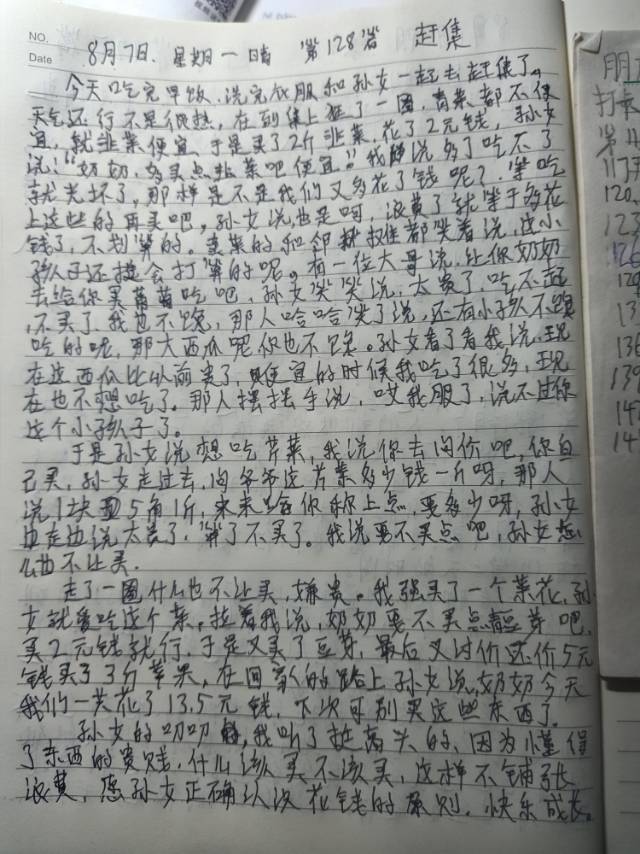 NO.
Date 8月7日. 星期一 晴 第128篇 赶集
今天吃完早饭.洗完衣服和孙女一起去赶集了,
天气还行不是很热,在到集上逛了一圈,青菜都不便
宜,就韭菜便宜于是买了2斤韭菜,花了2元钱,孙女
说:"奶奶,多买点韭菜吧便宜"我说多了吃不了
就光坏了,那样是不是我们又多花了钱呢?等吃
上这些的再买吧,孙女说也是呵,浪费了就等于多花
钱了,不划算的.卖菜的和邻摊都笑着说,这小
孩子还挺会打算的呢。有一位大哥说,让你奶奶
去给你买葡萄吃吧,孙女笑笑说:太贵了,吃不起
,不买了,我也不馋,那人哈哈笑了说,还有小孩不馋
吃的呢,那大西瓜呢你也不馋。孙女看了看我说,现
在这西瓜比以前贵了,便宜的时候我吃了很多,现
在也不想吃了。那人摆摆手说,哎我服了,说不过你
这个小孩子了。
于是孙女说想吃芹菜,我说你去问价吧,你自
己买,孙女走过去,问爷爷这芹菜多少钱一斤呀,那人
说1块5角1斤,来来给你称上点,要多少呀,孙女
边走边说太贵了,算了不买了。我说要不买点吧,孙女怎
么也不让买.
走了一圈什么也不让买,嫌贵。我强买了一个菜花,孙
女就爱吃这个菜。拉着我说,奶奶要不买点豆芽吧,
买2元钱就行,于是又买了豆芽,最后又讨价还价5元
钱买了3斤苹果,在回家的路上孙女说,奶奶今天
我们一共花了13.5元钱,下次可别买这些东西了。
孙女的叨叨,我听了挺高兴的,因为懂得
了东西的贵贱,什么该买不该买,这样不铺张
浪费,愿孙女正确认识花钱的原则,快乐成长。
朋
打卡
第
117
120.